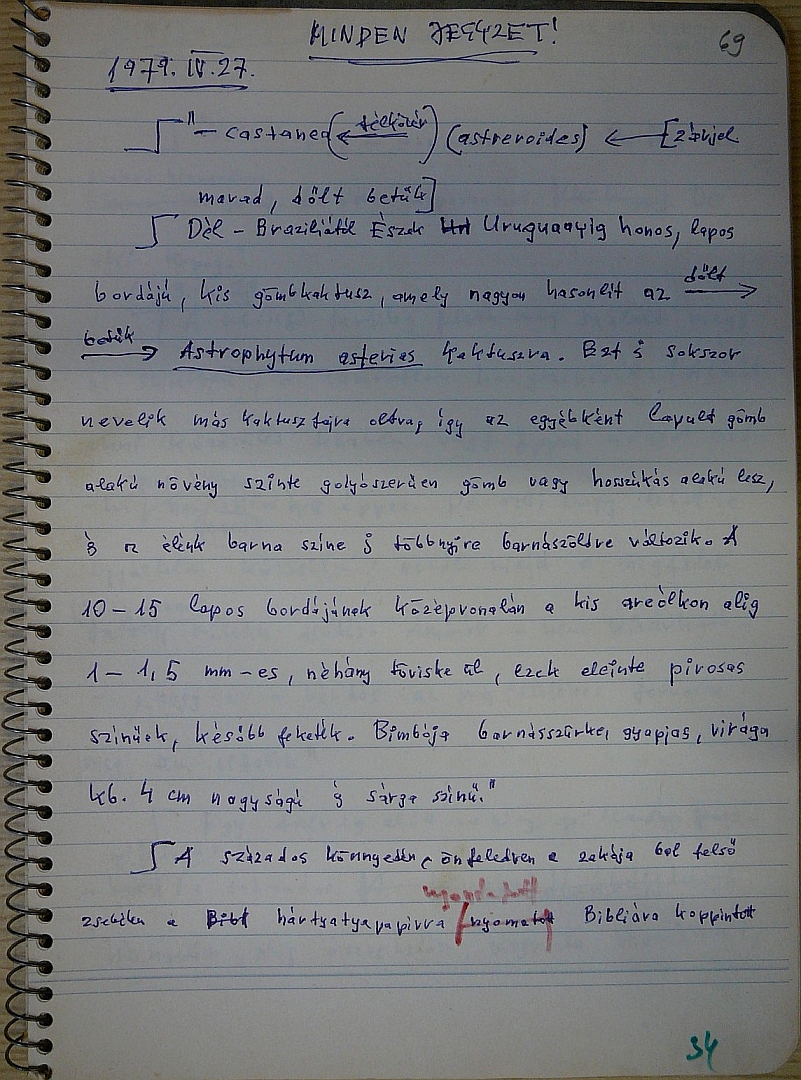 MINDEN JEGYZET!
69
1979. IV. 27.
"– castanea (félkövér) (astreroides) ← [zárójel
marad, dőlt betűk]
Dél – Braziliától Észak Uruguayig honos, lapos
bordájú, kis gömbkaktusz, amely nagyon hasonlit az dőlt
betűk → Astrophytum asterias kaktuszra. Ezt is sokszor
nevelik más kaktuszfajra oltva, így az egyébként lapult gömb
alakú növény szinte golyószerüen gömb vagy hosszúkás alakú lesz,
és az élénk barna szine is többnyire barnászöldre változik. A
10–15 lapos bordájának középvonalán a kis areólkon alig
1–1,5 mm-es, néhány töviske ül, ezek eleinte pirosas
szinüek, később feketék. Bimbója barnásszürke, gyapjas, virága
kb. 4 cm nagyságú és sárga szinű."
A százados könnyedén, önfeledten a zakója bal felső
zsebén a hártyapapirra nyomott Bibliára koppintott
34